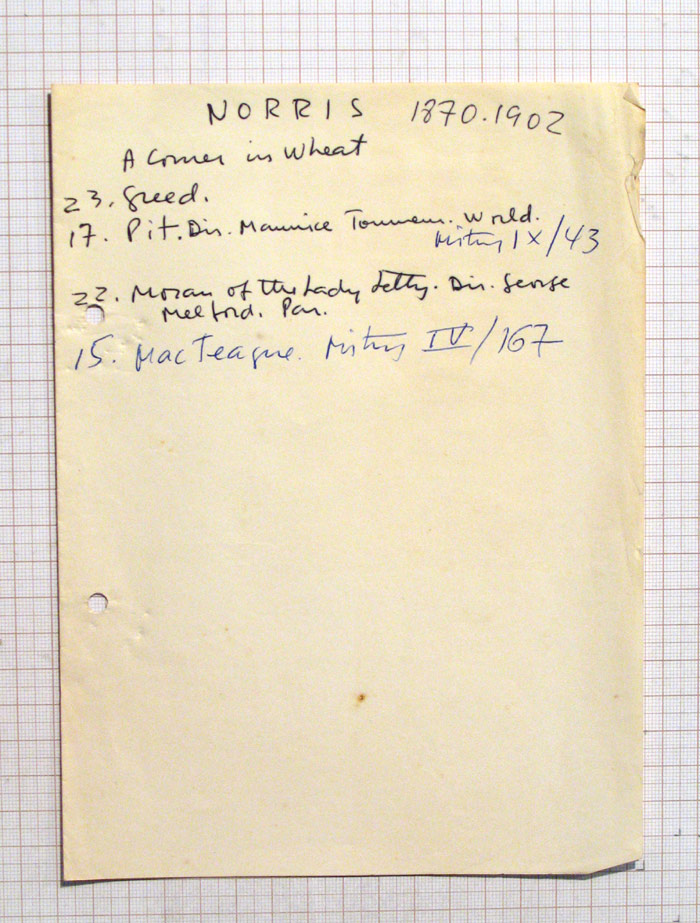 NORRIS 1870.1902
A Corner in Wheat
23. Greed.
17. Pit. Dir. Maurice Tourneur. World.
Mitry IX/43
22. Moran of the Lady Letty. Dir. George
Melford. Par.
15. MacTeague. Mitry IV/167